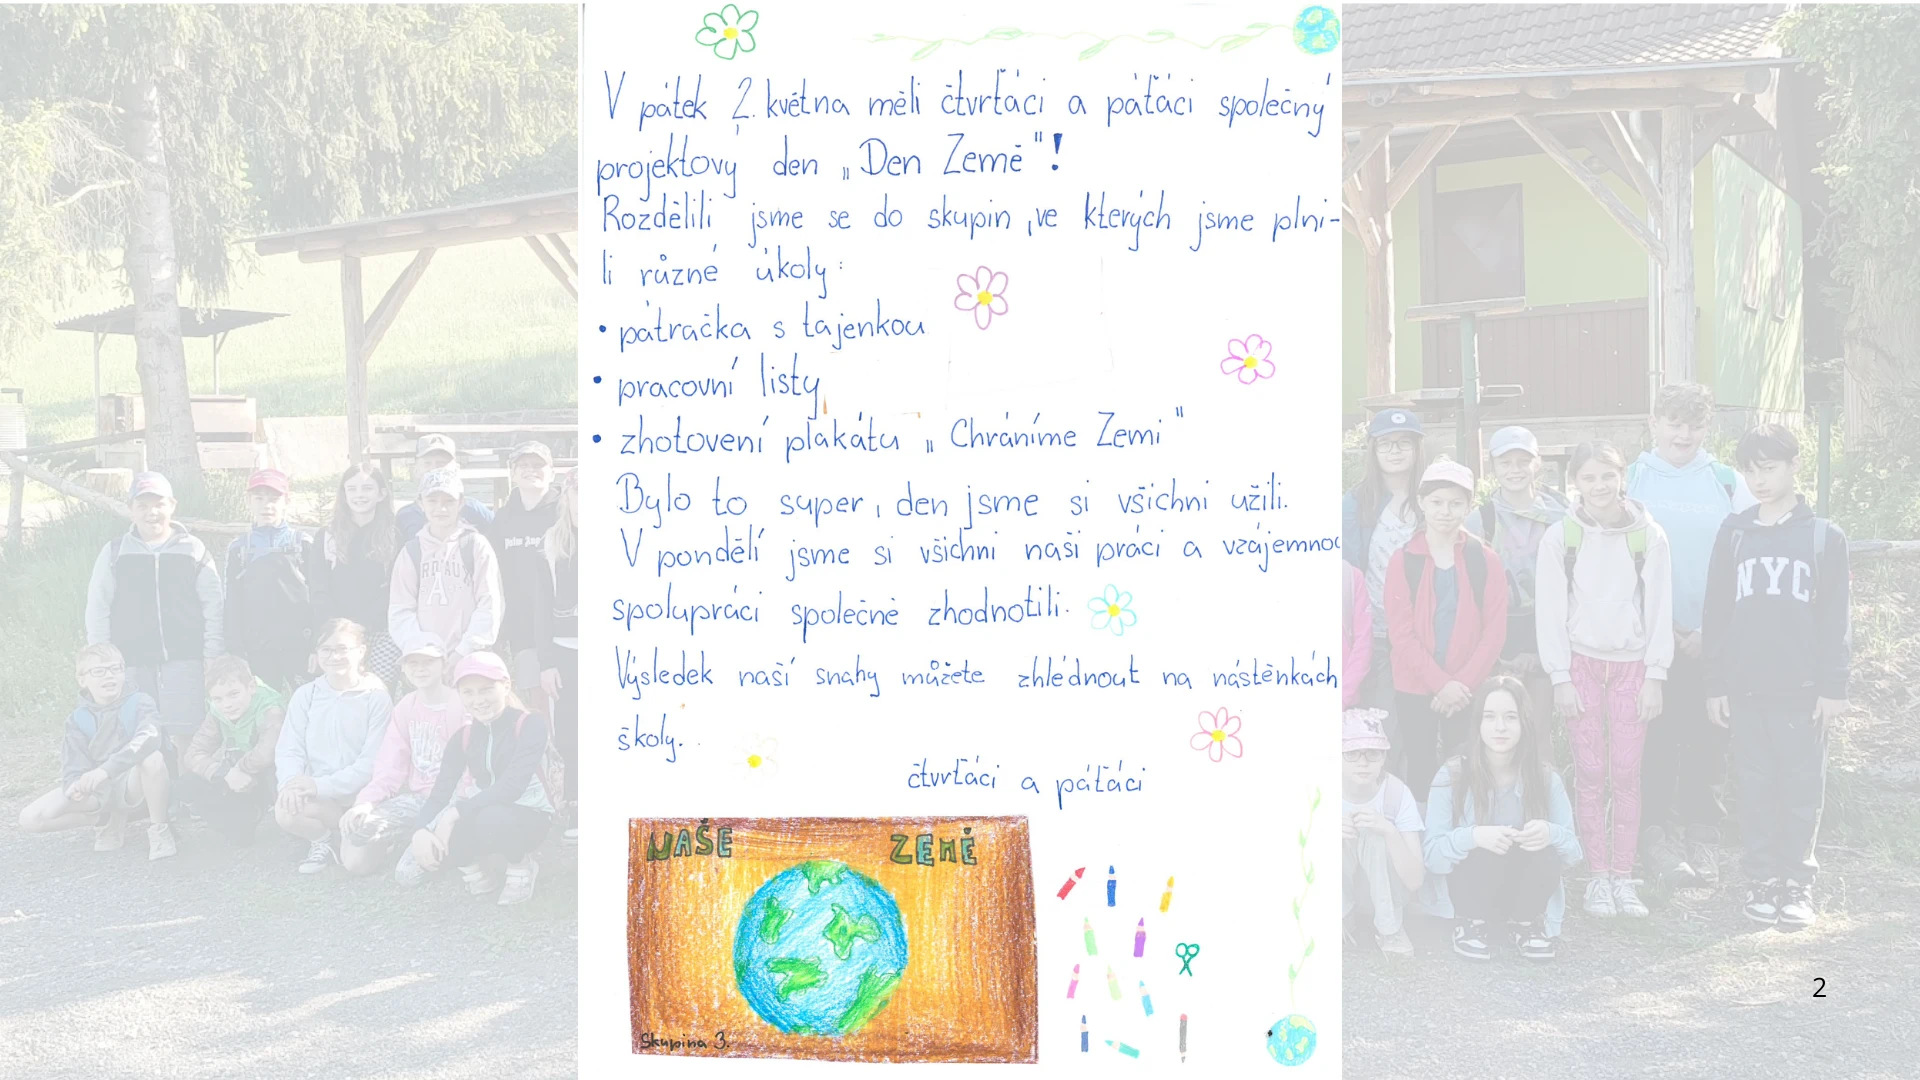 V pátek 2. května měli čtvrťáci a páťáci společný
projektový den „Den Země"!
Rozdělili jsme se do skupin, ve kterých jsme plni-
li různé úkoly:
• pátračka s tajenkou
• pracovní listy
• zhotovení plakátu „Chráníme Zemi"
Bylo to super, den jsme si všichni užili.
V pondělí jsme si všichni naši práci a vzájemnou
spolupráci společně zhodnotili.
Výsledek naší snahy můžete zhlédnout na nástěnkách
školy.
čtvrťáci a páťáci
NAŠE ZEMĚ
Skupina 3.
NYC
2